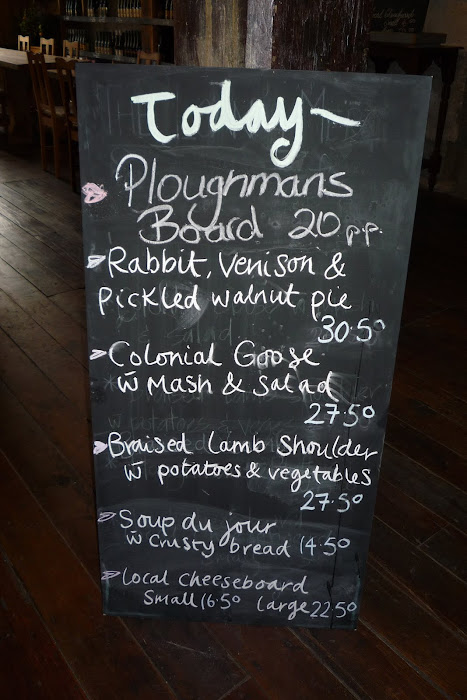 Today~
Ploughmans
Board 20 p.p.
Rabbit, Venison &
Pickled walnut pie
30.50
Colonial Goose
w̄ Mash & Salad
27.50
Braised Lamb Shoulder
w̄ potatoes & vegetables
27.50
Soup du jour
w̄ Crusty bread 14.50
Local Cheeseboard
Small 16.50 Large 22.50